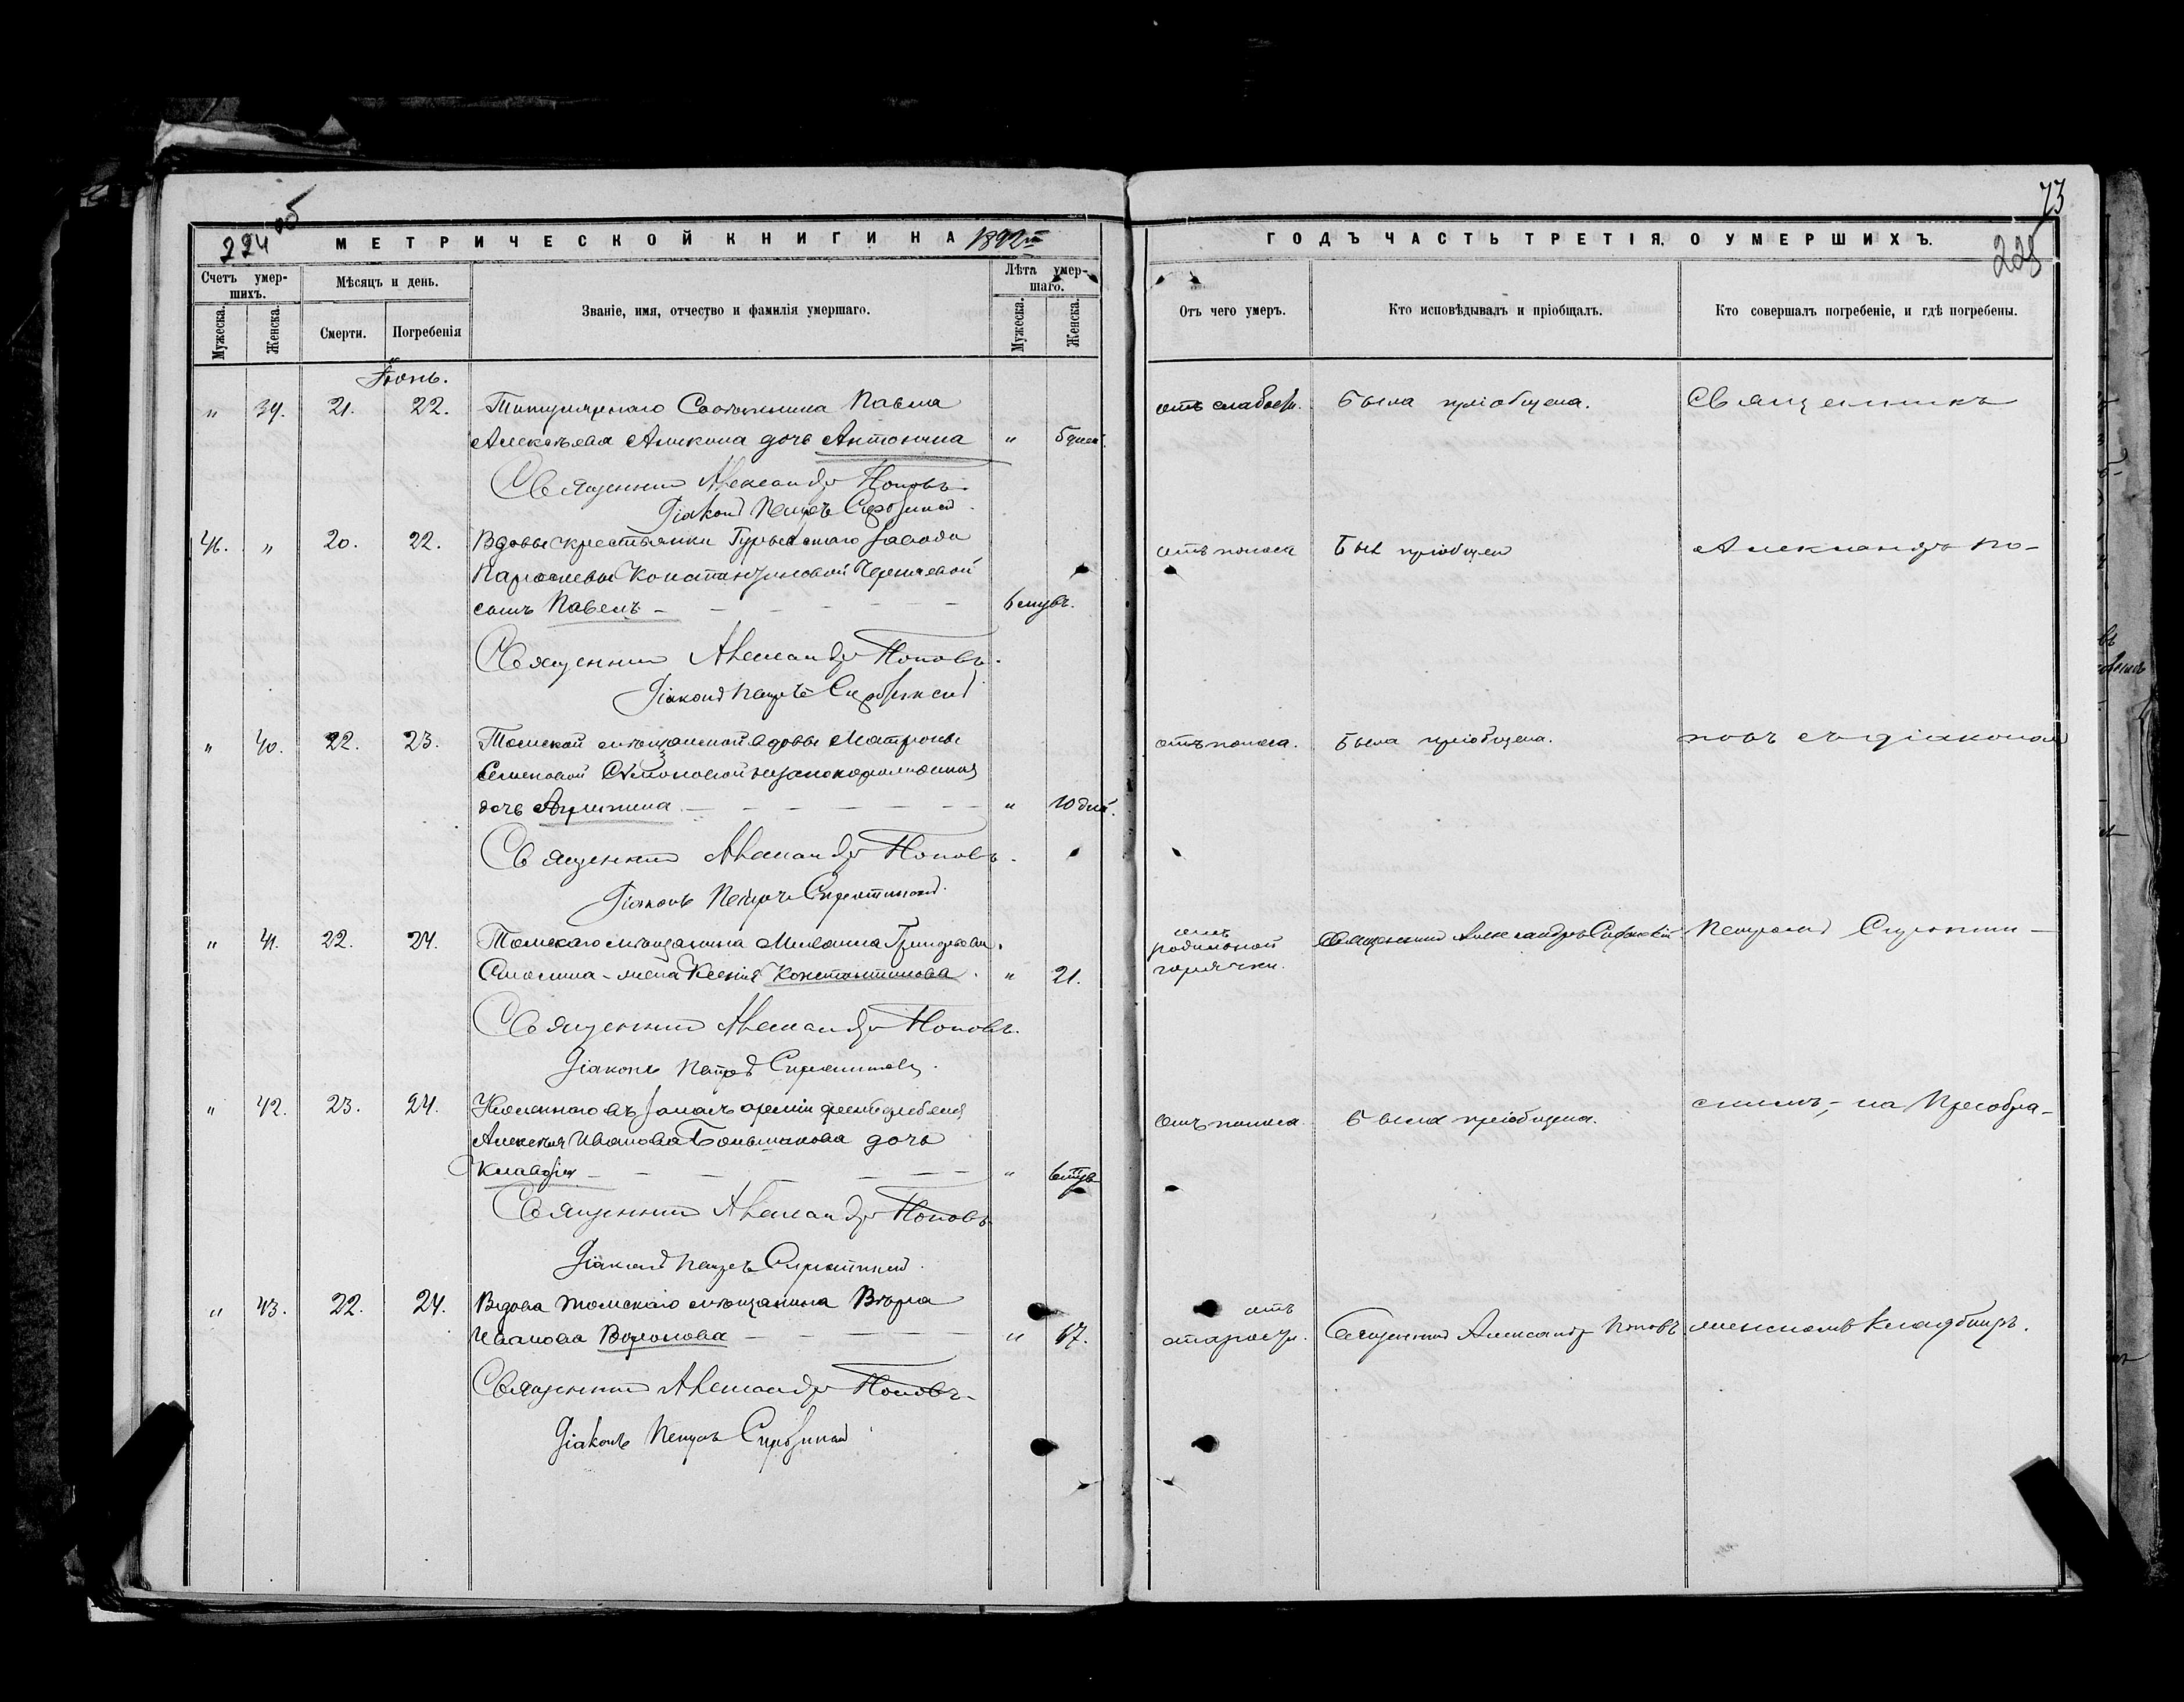 224 об
МЕТРИЧЕСКОЙ КНИГИ НА 1892й
Счетъ умер-
шихъ.
Мѣсяцъ и день.
Званіе, имя, отчество и фамилія умершаго.
Лѣта умер-
шаго.
Мужеска.
Женска.
Смерти.
Погребенія
Мужеска.
Женска.
Іюнь.
" 39. 21. 22. Титулярнаго Совѣтника Павла
Алексѣева Аликина дочь Антонина " 5 дней.
Священникъ Александръ Поповъ.
Діаконъ Петръ
46. " 20. 22. Вдовы крестьянки Гурьевскаго завода
Параскевы Константиновой
сынъ Павелъ 6 мѣс.
Священникъ Александръ Поповъ.
Діаконъ Петръ
" 40. 22. 23. Томской мѣщанской вдовы Матроны
Семеновой незаконорожденная
дочь " 10 дней.
Священникъ Александръ Поповъ.
Діаконъ Петръ
" 41. 22. 24. Томскаго мѣщанина Михаила Григорьева
жена Ксенія Константинова " 21.
Священникъ Александръ Поповъ.
Діаконъ Петръ
" 42. 23. 24. арміи фельдфебеля
Алексѣя Иванова Большакова дочь
Клавдія "
Священникъ Александръ Поповъ
Діаконъ Петръ
" 43. 22. 24. Вдова томскаго мѣщанина Вѣра
Иванова Воронова " 67.
Священникъ Александръ Поповъ
Діаконъ Петръ
73
225
ГОДЪ ЧАСТЬ ТРЕТІЯ, О УМЕРШИХЪ.
Отъ чего умеръ.
Кто исповѣдывалъ и пріобщалъ.
Кто совершалъ погребеніе, и гдѣ погребены.
отъ слабости. Была пріобщена. Священникъ
отъ поноса Былъ пріобщенъ Александръ По-
отъ поноса. Была пріобщена. повъ съ діакономъ
отъ
родильной Священникъ Александръ Петромъ
горячки.
отъ поноса. Была пріобщена. на Преобра-
отъ
старости. Священникъ Александръ Поповъ женскомъ кладбищѣ.